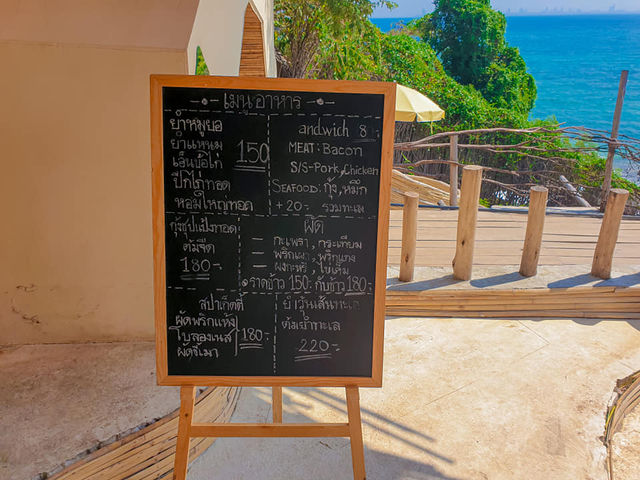 เมนูอาหาร
ยำหมูยอ
ยำแหนม
เอ็นข้อไก่ 150
ปีกไก่ทอด
หอมใหญ่ทอด
andwich 8
MEAT: Bacon
S/S-Pork, Chicken
SEAFOOD: กุ้ง, หมึก
+20.- รวมทะเล
กุ้งชุปแป้งทอด
ต้มจืด
180.-
ผัด
– กะเพรา, กระเทียม
– พริกเผา, พริกแกง
– ผงกะหรี่, ไข่เค็ม
ราดข้าว 150.- กับข้าว 180.-
สปาเก็ตตี้
ผัดพริกแห้ง
โบลองเนส 180.-
ผัดขี้เมา
ยำวุ้นเส้นทะเล
ต้มยำทะเล
220.-